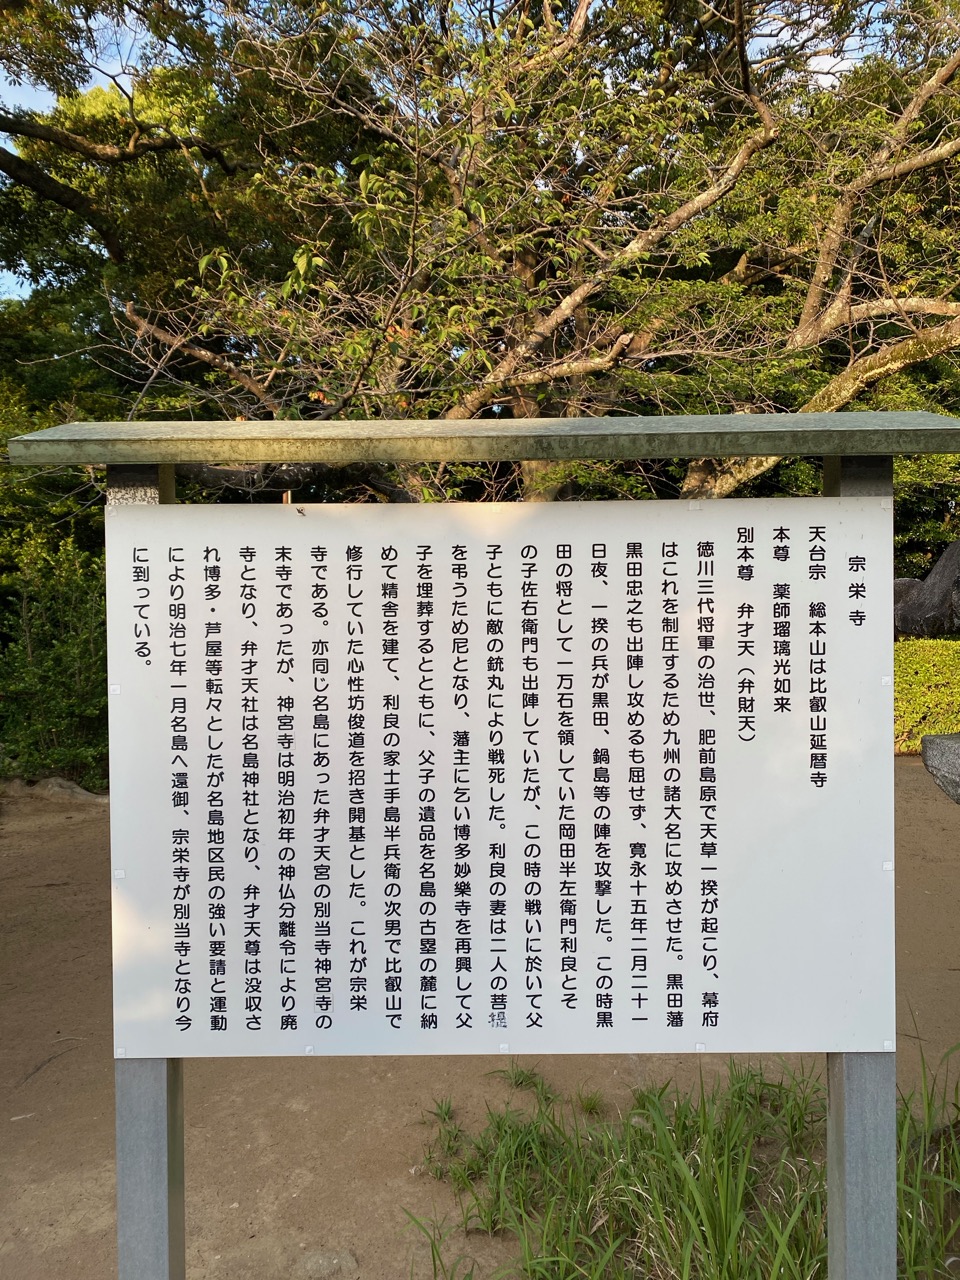 宗栄寺
天台宗　総本山は比叡山延暦寺
本尊　薬師瑠璃光如来
別本尊　弁才天（弁財天）
徳川三代将軍の治世、肥前島原で天草一揆が起こり、幕府
はこれを制圧するため九州の諸大名に攻めさせた。黒田藩
黒田忠之も出陣し攻めるも屈せず、寛永十五年二月二十一
日夜、一揆の兵が黒田、鍋島等の陣を攻撃した。この時黒
田の将として一万石を領していた岡田半左衛門利良とそ
の子佐右衛門も出陣していたが、この時の戦いに於いて父
子ともに敵の銃丸により戦死した。利良の妻は二人の菩提
を弔うため尼となり、藩主に乞い博多妙樂寺を再興して父
子を埋葬するとともに、父子の遺品を名島の古塁の麓に納
めて精舎を建て、利良の家士手島半兵衛の次男で比叡山で
修行していた心性坊俊道を招き開基とした。これが宗栄
寺である。亦同じ名島にあった弁才天宮の別当寺神宮寺の
末寺であったが、神宮寺は明治初年の神仏分離令により廃
寺となり、弁才天社は名島神社となり、弁才天尊は没収さ
れ博多・芦屋等転々としたが名島地区民の強い要請と運動
により明治七年一月名島へ還御、宗栄寺が別当寺となり今
に到っている。